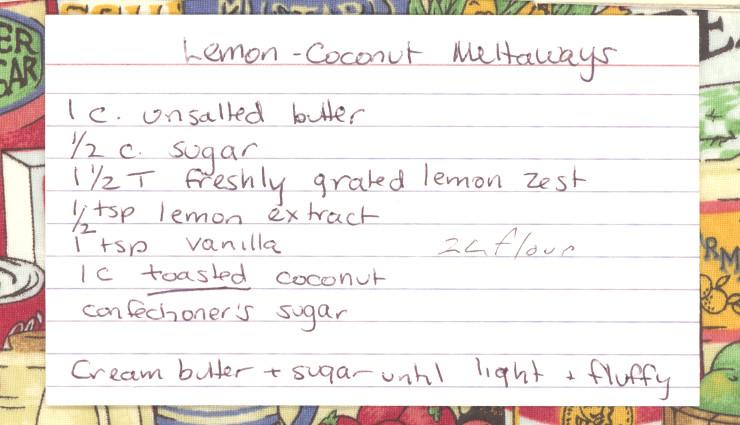 Lemon-Coconut Meltaways
1 c. unsalted butter
1/2 c. sugar
1 1/2 T freshly grated lemon zest
1/2 tsp lemon extract
1 tsp vanilla 2c flour
1 c toasted coconut
confectioner's sugar
Cream butter + sugar until light + fluffy